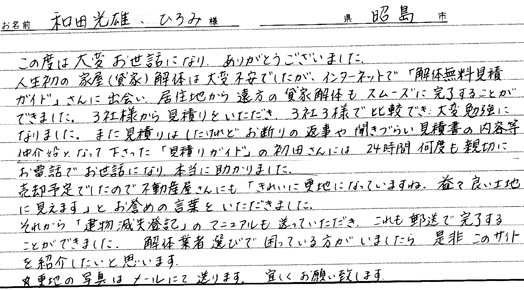 お名前 和田光雄、ひろみ 様 県 昭島 市
この度は大変お世話になり、ありがとうございました。
人生初の家屋(貸家)解体は大変不安でしたが、インターネットで「解体無料見積
ガイド」さんに出会い、居住地から遠方の貸家解体もスムーズに完了することが
できました。3社様から見積りをいただき、3社3様で比較でき、大変勉強に
なりました。また見積りはしたけれどお断りの返事や聞きづらい見積書の内容等
仲介役となって下さった「見積りガイド」の初田さんには24時間何度も親切に
お電話でお世話になり、本当に助かりました。
売却予定でしたので不動産屋さんにも「きれいに更地になっていますね。益々良い土地
に見えます」とお誉めの言葉をいただきました。
それから「建物滅失登記」のマニュアルも送っていただき、これも郵送で完了する
ことができました。解体業者選びで困っている方がいましたら、是非このサイト
を紹介したいと思います。
更地の写真はメールにて送ります。宜しくお願い致します。